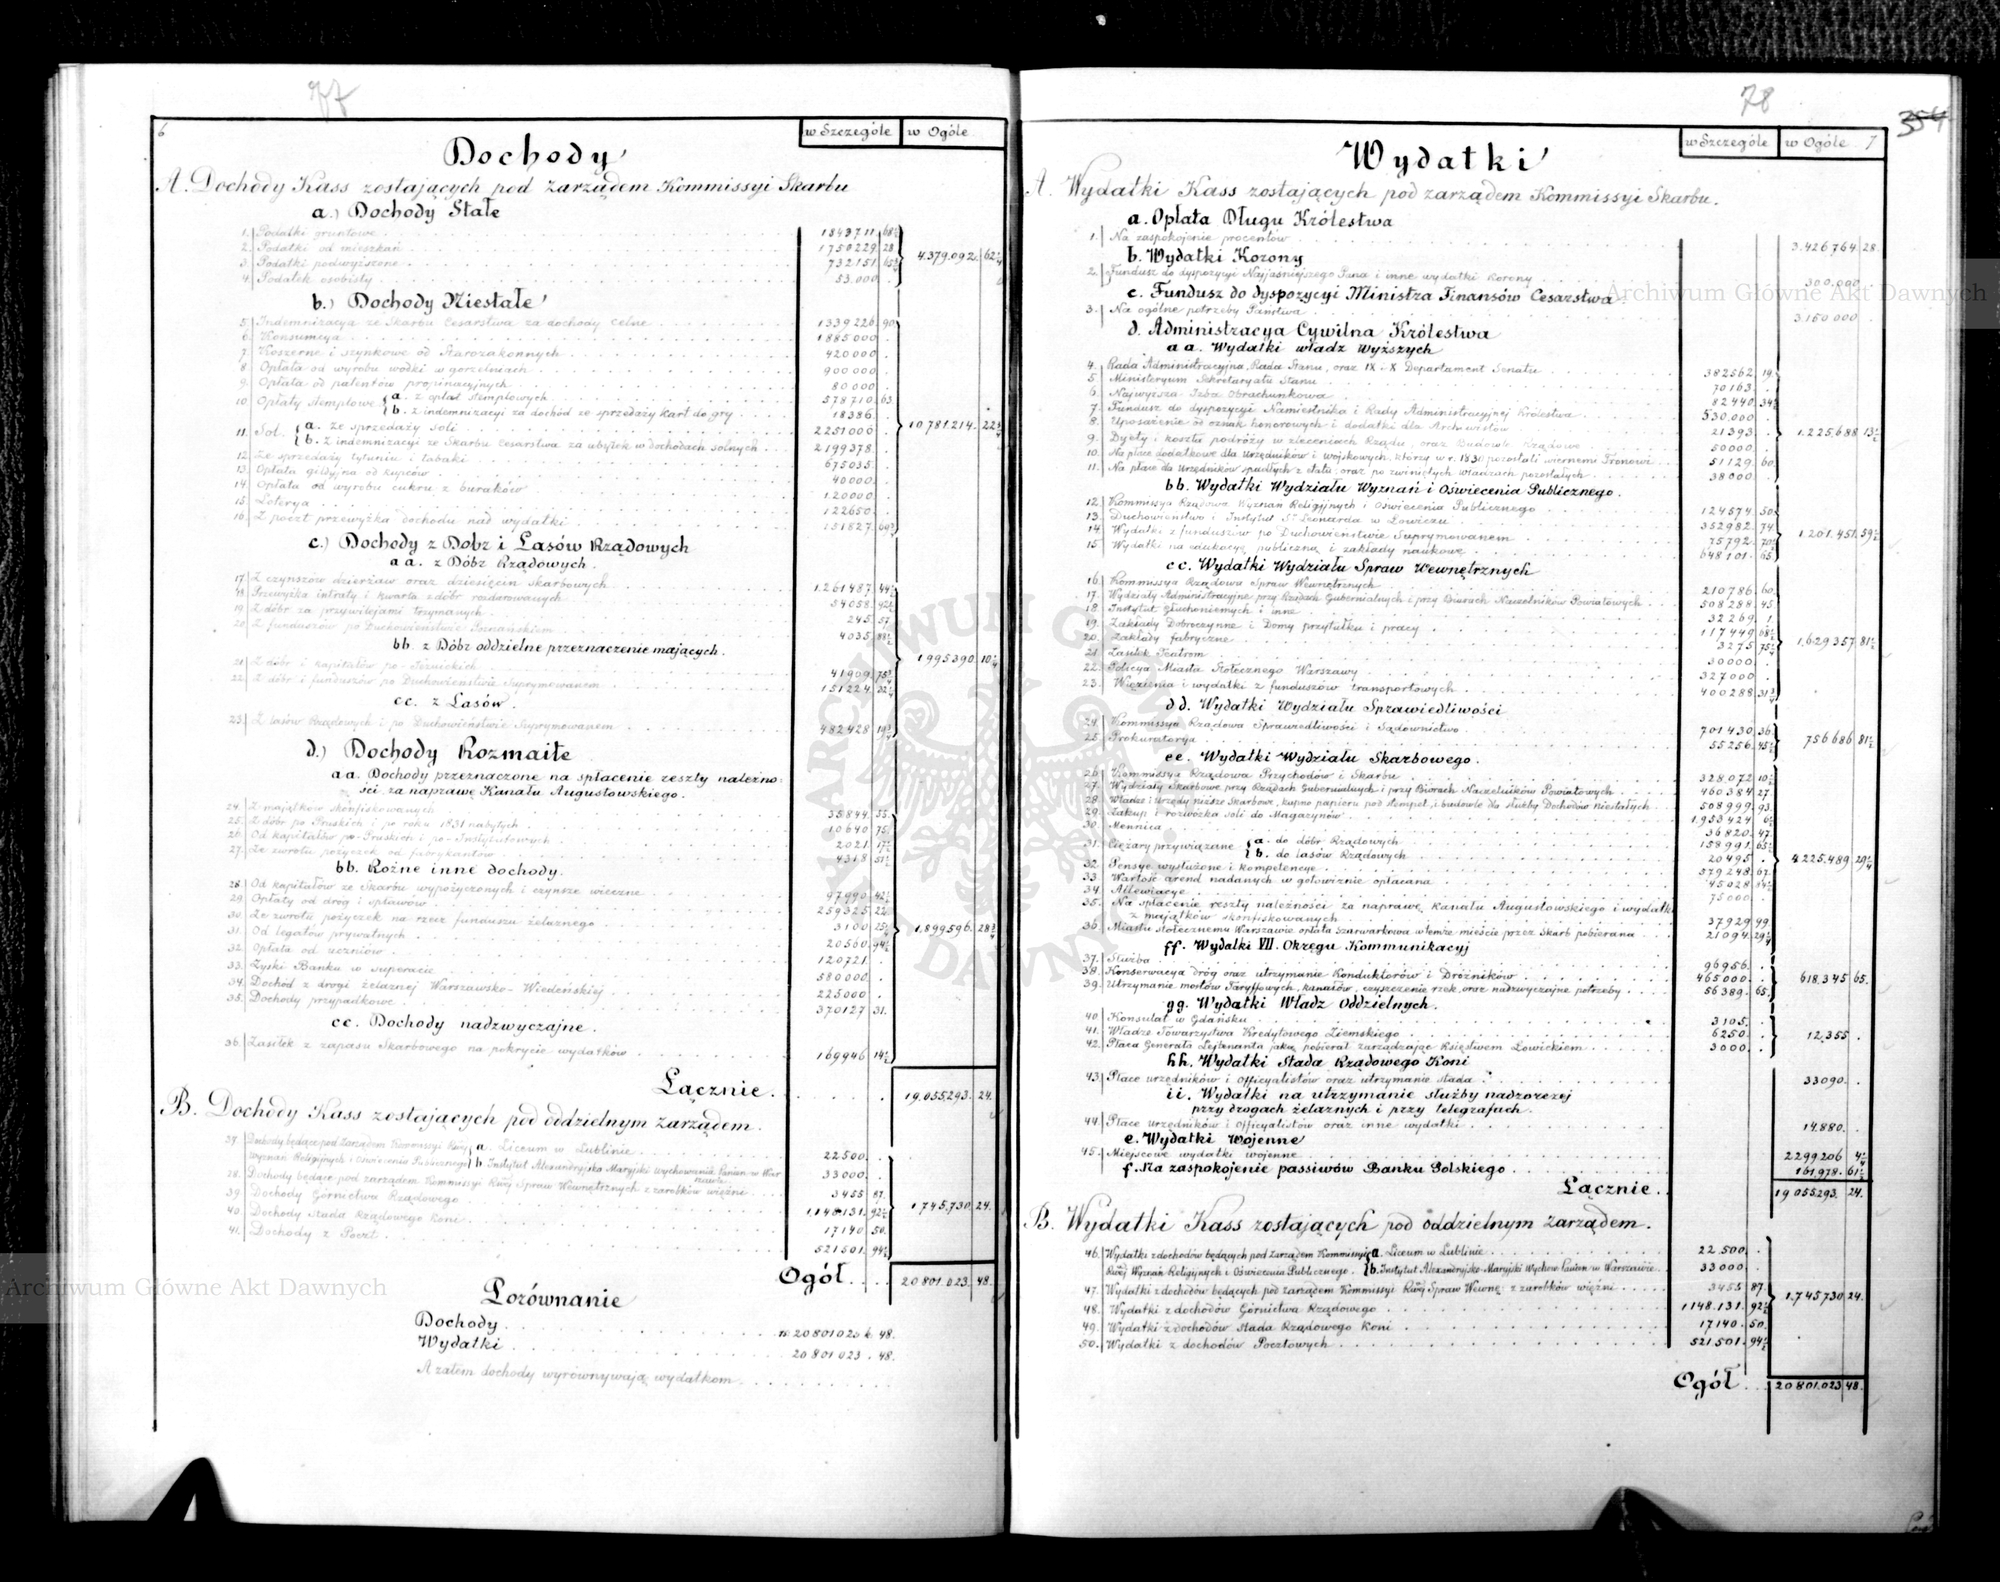 77
6
w Szczególe w Ogóle
Dochody
A. Dochody Kass zostających pod zarządem Kommissyi Skarbu
a.) Dochody Stałe
1. Podatki gruntowe 1843711 68½
2. Podatki od mieszkań 1750229 28
3. Podatki podwyższone 732151 65¾
4. Podatek osobisty 53.000 4.379.092 62¼
b.) Dochody Niestałe
5. Indemnizacya ze Skarbu Cesarstwa za dochody celne 1339226 90
6. Konsumcya 1885000
7. Koszerne i szynkowe od Starozakonnych 420000
8. Opłata od wyrobu wódki w gorzelniach 900000
9. Opłata od patentów propinacyjnych 80000
10. Opłaty stemplowe a. z opłat stemplowych 578710 63
b. z indemnizacyi za dochód ze sprzedaży kart do gry 18386
11. Sól. a. ze sprzedaży soli 2251000 10781214 22¾
b. z indemnizacyi ze Skarbu Cesarstwa za ubytek w dochodach solnych 2199378
12. Ze sprzedaży tytuniu i tabaki 675035
13. Opłata gildyjna od kupców 40000
14. Opłata od wyrobu cukru z buraków 120000
15. Loterya 122650
16. Z poczt przewyżka dochodu nad wydatki 151827 69¾
c.) Dochody z Dóbr i Lasów Rządowych
aa. z Dóbr Rządowych.
17. Z czynszów dzierżaw oraz dziesięcin skarbowych 1.261487 44½
18. Przewyżka intraty i kwarta z dóbr rozdarowanych 54058 42½
19. Z dóbr za przywilejami trzymanych 245 57
20. Z funduszów po Duchowieństwie Poznańskiem 4035 88½
bb. z Dóbr oddzielne przeznaczenie mających. 1995390 10¼
21. Z dóbr i kapitałów po-Jezuickich 41909 75¾
22. Z dóbr i funduszów po Duchowieństwie Suprymowanem 151224 32¼
cc. z Lasów.
23. Z lasów Rządowych i po Duchowieństwie Suprymowanem 482428 19¾
d.) Dochody Rozmaite
aa. Dochody przeznaczone na spłacenie reszty należno-
ści za naprawę Kanału Augustowskiego.
24. Z majątków skonfiskowanych 35844 55
25. Z dóbr po-Pruskich i po roku 1831 nabytych 10640 75
26. Od kapitałów po-Pruskich i po-Instytutowych 2021 17½
27. Ze zwrotu pożyczek od fabrykantów 4318 51½
bb. Różne inne dochody.
28. Od kapitałów ze Skarbu wypożyczonych i czynsze wieczne 97990 42½
29. Opłaty od dróg i spławów 259325 22
30. Ze zwrotu pożyczek na rzecz funduszu żelaznego 3100 25½ 1.899596 28¾
31. Od legatów prywatnych 20560 94½
32. Opłata od uczniów 120721
33. Zyski Banku w superacie 580000
34. Dochód z drogi żelaznej Warszawsko-Wiedeńskiej 225000
35. Dochody przypadkowe 370127 31
cc. Dochody nadzwyczajne.
36. Zasiłek z zapasu Skarbowego na pokrycie wydatków 169946 14½
Łącznie. 19.055293. 24.
B. Dochody Kass zostających pod oddzielnym zarządem.
37. Dochody będące pod zarządem Kommissyi Rząd. a. Liceum w Lublinie 22500
Wyznań Religijnych i Oświecenia Publicznego b. Instytut Alexandryjsko Maryjski wychowania Panien w War
szawie 33000
38. Dochody będące pod zarządem Kommissyi Rząd. Spraw Wewnętrznych z zarobków więźni 3455 87
39. Dochody Górnictwa Rządowego 1,148.131. 92½ 1.745,730 24.
40. Dochody Stada Rządowego Koni 17140 50
41. Dochody z Poczt 521501 94½
Ogół 20801.023. 48.
Porównanie
Dochody rs. 20801023 k. 48.
Wydatki 20801023. 48.
A zatem dochody wyrównywają wydatkom
78
354
w Szczególe w Ogóle. 7
Wydatki
A. Wydatki Kass zostających pod zarządem Kommissyi Skarbu.
a. Opłata Długu Królestwa
1. Na zaspokojenie procentów 3.426.764 28.
b. Wydatki Korony
2. Fundusz do dyspozycyi Najjaśniejszego Pana i inne wydatki Korony 300.000
c. Fundusz do dyspozycyi Ministra Finansów Cesarstwa.
3. Na ogólne potrzeby Państwa 3.150000
d. Administracya Cywilna Królestwa
aa. Wydatki władz wyższych
4. Rada Administracyjna, Rada Stanu, oraz IX i X Departament Senatu 382562 19
5. Ministeryum Sekretaryatu Stanu 70163
6. Najwyższa Izba Obrachunkowa 82440 34½
7. Fundusz do dyspozycyi Namiestnika i Rady Administracyjnej Królestwa 530.000
8. Uposażenie od oznak honorowych i dodatki dla Archiwistów 21393 1.225.688 13½
9. Dyety i koszta podróży w zleceniach Rządu, oraz Budowle Rządowe 50000
10. Na płace dodatkowe dla urzędników i wojskowych, którzy w r. 1830 pozostali wiernemi Tronowi 51129 60
11. Na płace dla Urzędników spadłych z etatu, oraz po zwiniętych władzach pozostałych 38000
bb. Wydatki Wydziału Wyznań i Oświecenia Publicznego.
12. Kommissya Rządowa Wyznań Religijnych i Oświecenia Publicznego 124574 50
13. Duchowieństwo i Instytut St. Leonarda w Łowiczu 352982 74
14. Wydatki z funduszów po Duchowieństwie Suprymowanem 75792 70½ 1.201.451 59½
15. Wydatki na edukacyę publiczną i zakłady naukowe 648101 65
cc. Wydatki Wydziału Spraw Wewnętrznych
16. Kommissya Rządowa Spraw Wewnętrznych 210786 60
17. Wydziały Administracyjne przy Rządach Gubernialnych i przy Biurach Naczelników Powiatowych 508288 45
18. Instytut Głuchoniemych i inne 32269 1
19. Zakłady Dobroczynne i Domy przytułku i pracy 117449 68½
20. Zakłady fabryczne 3275 75½ 1,629357 81½
21. Zasiłek Teatrom 30000
22. Policya Miasta Stołecznego Warszawy 327000
23. Więzienia i wydatki z funduszów transportowych 400288 31¾
dd. Wydatki Wydziału Sprawiedliwości
24. Kommissya Rządowa Sprawiedliwości i Sądownictwo 701430 36
25. Prokuratorya 55256 45½ 756686 81½
ee. Wydatki Wydziału Skarbowego.
26. Kommissya Rządowa Przychodów i Skarbu 328.072 10½
27. Wydziały Skarbowe przy Rządach Gubernialnych i przy Biurach Naczelników Powiatowych 460384 27
28. Władze i Urzędy niższe Skarbowe, kupno papieru pod stempel, i budowle dla służby Dochodów niestałych 508999 93
29. Zakup i rozwózka soli do Magazynów 1.953424 6½
30. Mennica 36820 47
31. Ciężary przywiązane a. do dóbr Rządowych 158991 65½
b. do lasów Rządowych 20495 4225,489 29¼
32. Pensye wysłużone i kompetencye 579248 67
33. Wartość arend nadanych w gotowiznie opłacana 45028
34. Allewiacye 75000
35. Na spłacenie reszty należności za naprawę Kanału Augustowskiego i wydatki
z majątków skonfiskowanych 37929 49
36. Miastu stołecznemu Warszawie opłata szarwarkowa w temże mieście przez Skarb pobierana 21094 29¼
ff. Wydatki VII. Okręgu Kommunikacyj
37. Służba 96956
38. Konserwacya dróg oraz utrzymanie Konduktorów i Dróżników 465000 618345 65.
39. Utrzymanie mostów Taryffowych, kanałów, czyszczenie rzek, oraz nadzwyczajne potrzeby 56389 65
gg. Wydatki Władz Oddzielnych.
40. Konsulat w Gdańsku 3105
41. Władze Towarzystwa Kredytowego Ziemskiego 6250 12,355
42. Płaca Generała Lejtenanta jaką pobierał zarządzając Księstwem Łowickiem 3000
hh. Wydatki Stada Rządowego Koni
43. Płace urzędników i officyalistów oraz utrzymanie stada 33090.
ii. Wydatki na utrzymanie służby nadzorczej
przy drogach żelaznych i przy telegrafach.
44. Płace urzędników i Officyalistów oraz inne wydatki 14.880.
e. Wydatki Wojenne
45. Miejscowe wydatki wojenne 2299206 4¼
f. Na zaspokojenie passiwów Banku Polskiego 161978. 61½
Łącznie. 19055293. 24.
B. Wydatki Kass zostających pod oddzielnym zarządem.
46. Wydatki z dochodów będących pod zarządem Kommissyi a. Liceum w Lublinie 22.500
Rząd. Wyznań Religijnych i Oświecenia Publicznego. b. Instytut Alexandryjsko-Maryjski Wychow. Panien w Warszawie 33000
47. Wydatki z dochodów będących pod zarządem Kommissyi Rząd. Spraw Wewnę: z zarobków więźni 3455 87
48. Wydatki z dochodów Górnictwa Rządowego 1148.131 92½ 1.745730 24.
49. Wydatki z dochodów Stada Rządowego Koni 17140 50
50. Wydatki z dochodów Pocztowych 521.501 94½
Ogół 20801.023 48.
Archiwum Główne Akt Dawnych
Archiwum Główne Akt Dawnych
ARCHIWUM GŁÓWNE AKT DAWNYCH